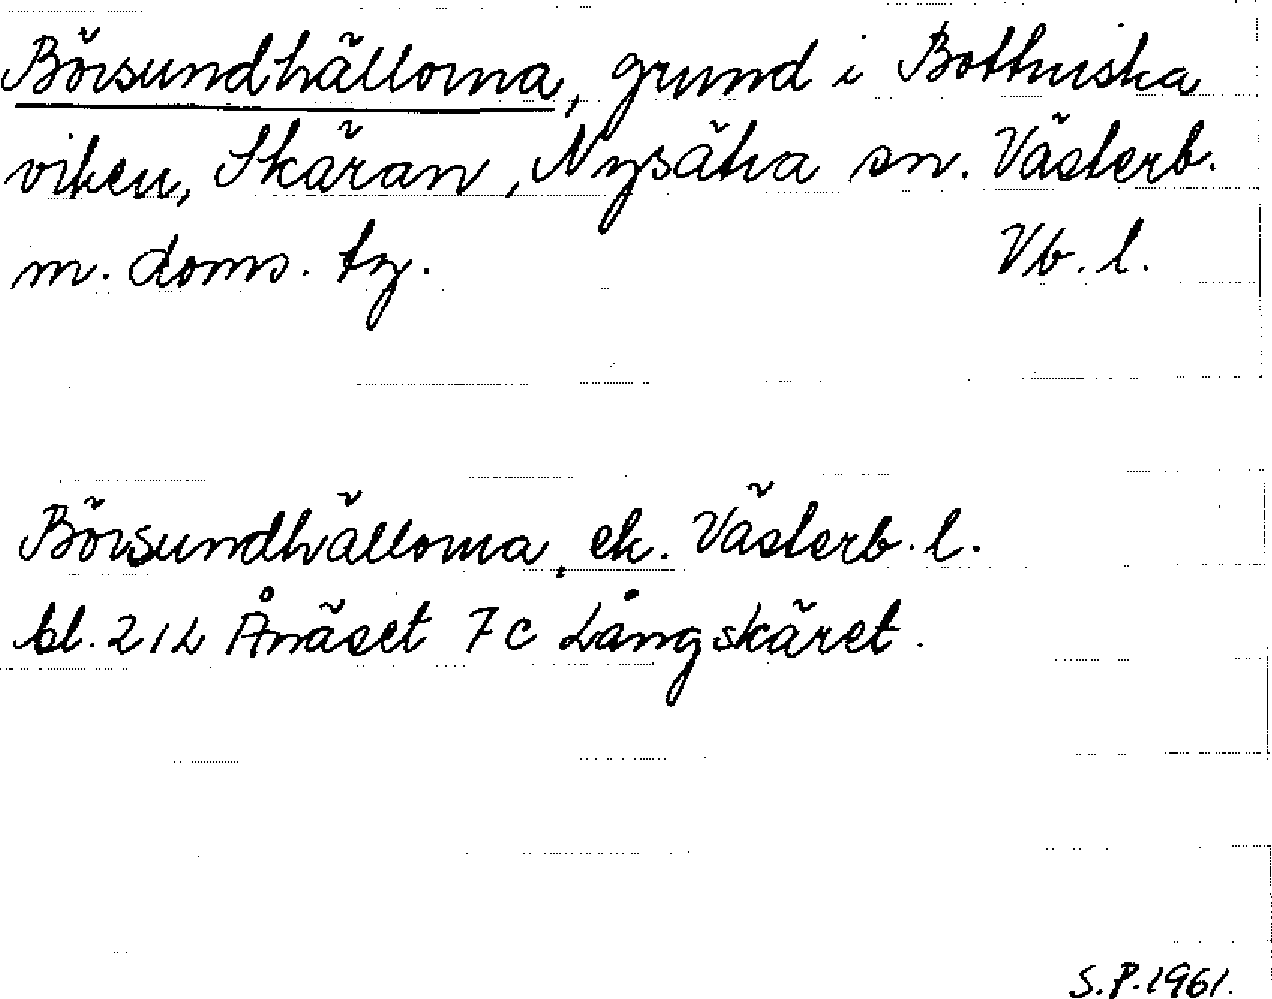 Börsundhällorna, grund i Bottniska
viken, Skäran, Nysätra sn. Västerb.
m. doms. tg. Vb. l.
Börsundhällorna, ek. Västerb. l.
bl. 21L Ånäset 7c Långskäret.
S.P. 1961.